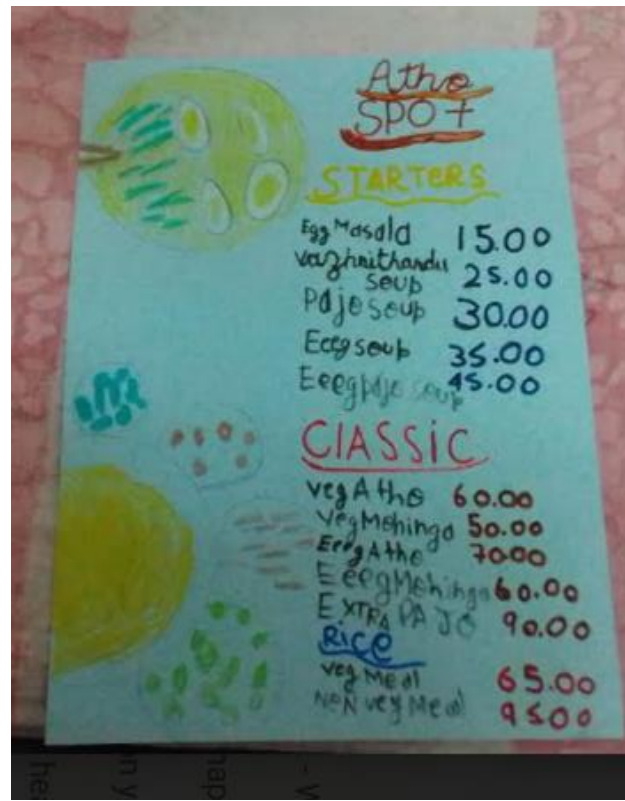 Atho
SPOt
STARTERS
Egg Masala 15.00
vazhaithandu
soup 25.00
Pajo soup 30.00
Eeeg soup 35.00
Eeeg pajo soup 45.00
ClASSiC
veg Atho 60.00
veg Mohinga 50.00
Eeeg Atho 70.00
Eeeg Mohinga 60.00
EXTRA PAJO 90.00
RiCe
veg Meal 65.00
NoN veg Meal 95.00